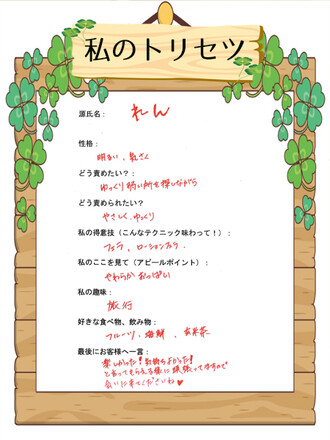 私のトリセツ
源氏名：
れん
性格：
明るい、気さく
どう責めたい？：
ゆっくり弱い所を探しながら
どう責められたい？
やさしく、ゆっくり
私の得意技（こんなテクニック味わって！）：
フェラ、ローションプレイ
私のここを見て（アピールポイント）：
やわらかおっぱい
私の趣味：
旅行
好きな食べ物、飲み物：
フルーツ、海鮮、玄米茶
最後にお客様へ一言：
楽しかった！お話もよかった！
と言ってもらえる様に頑張ってますので
会いに来てくださいね♥